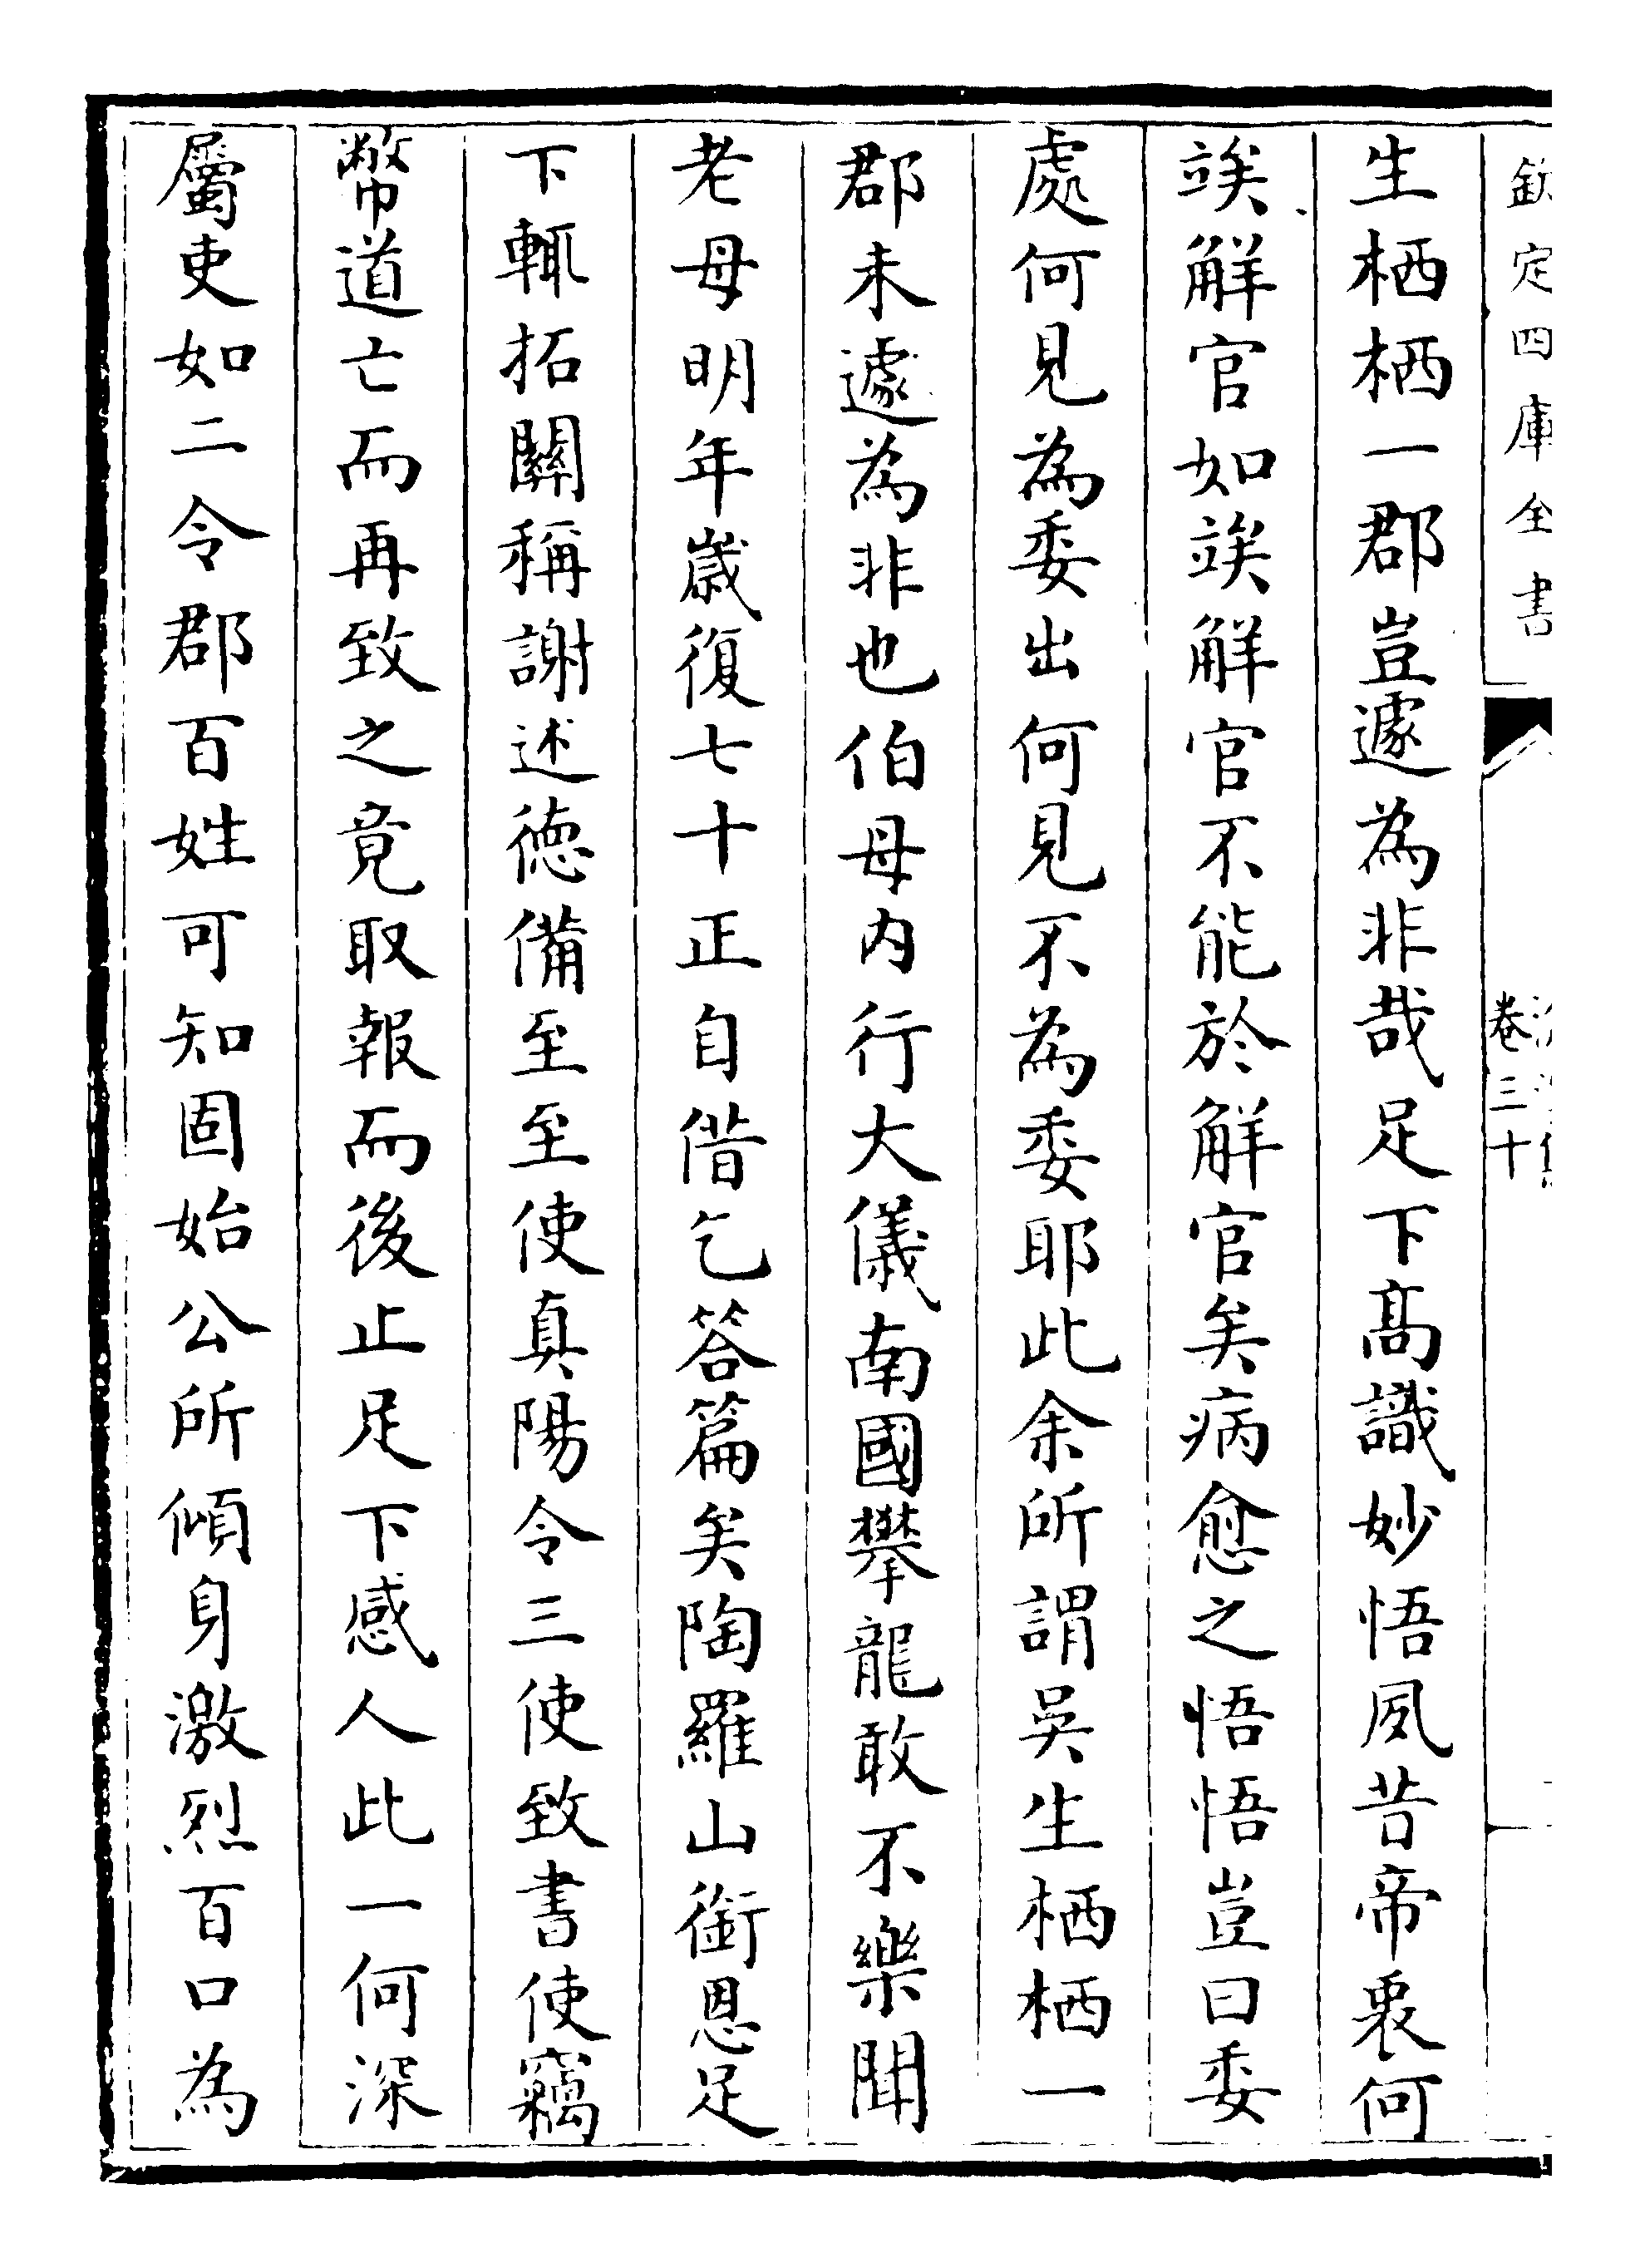 欽定四庫全書
卷三十
生栖栖一郡豈遽為非哉足下髙識妙悟夙昔帝衷何
竢觧官如竢觧官不能於觧官矣病愈之悟悟豈曰委
處何見為委出何見不為委耶此余所謂吳生栖栖一
郡未遽為非也伯母内行大儀南國攀龍敢不樂聞
老母明年嵗復七十正自偕乞答篇矣陶羅山銜恩足
下輒拓闗稱謝述徳備至至使真陽令三使致書使竊
幣道亡而再致之竟取報而後止足下感人此一何深
屬吏如二令郡百姓可知固始公所傾身激烈百口為